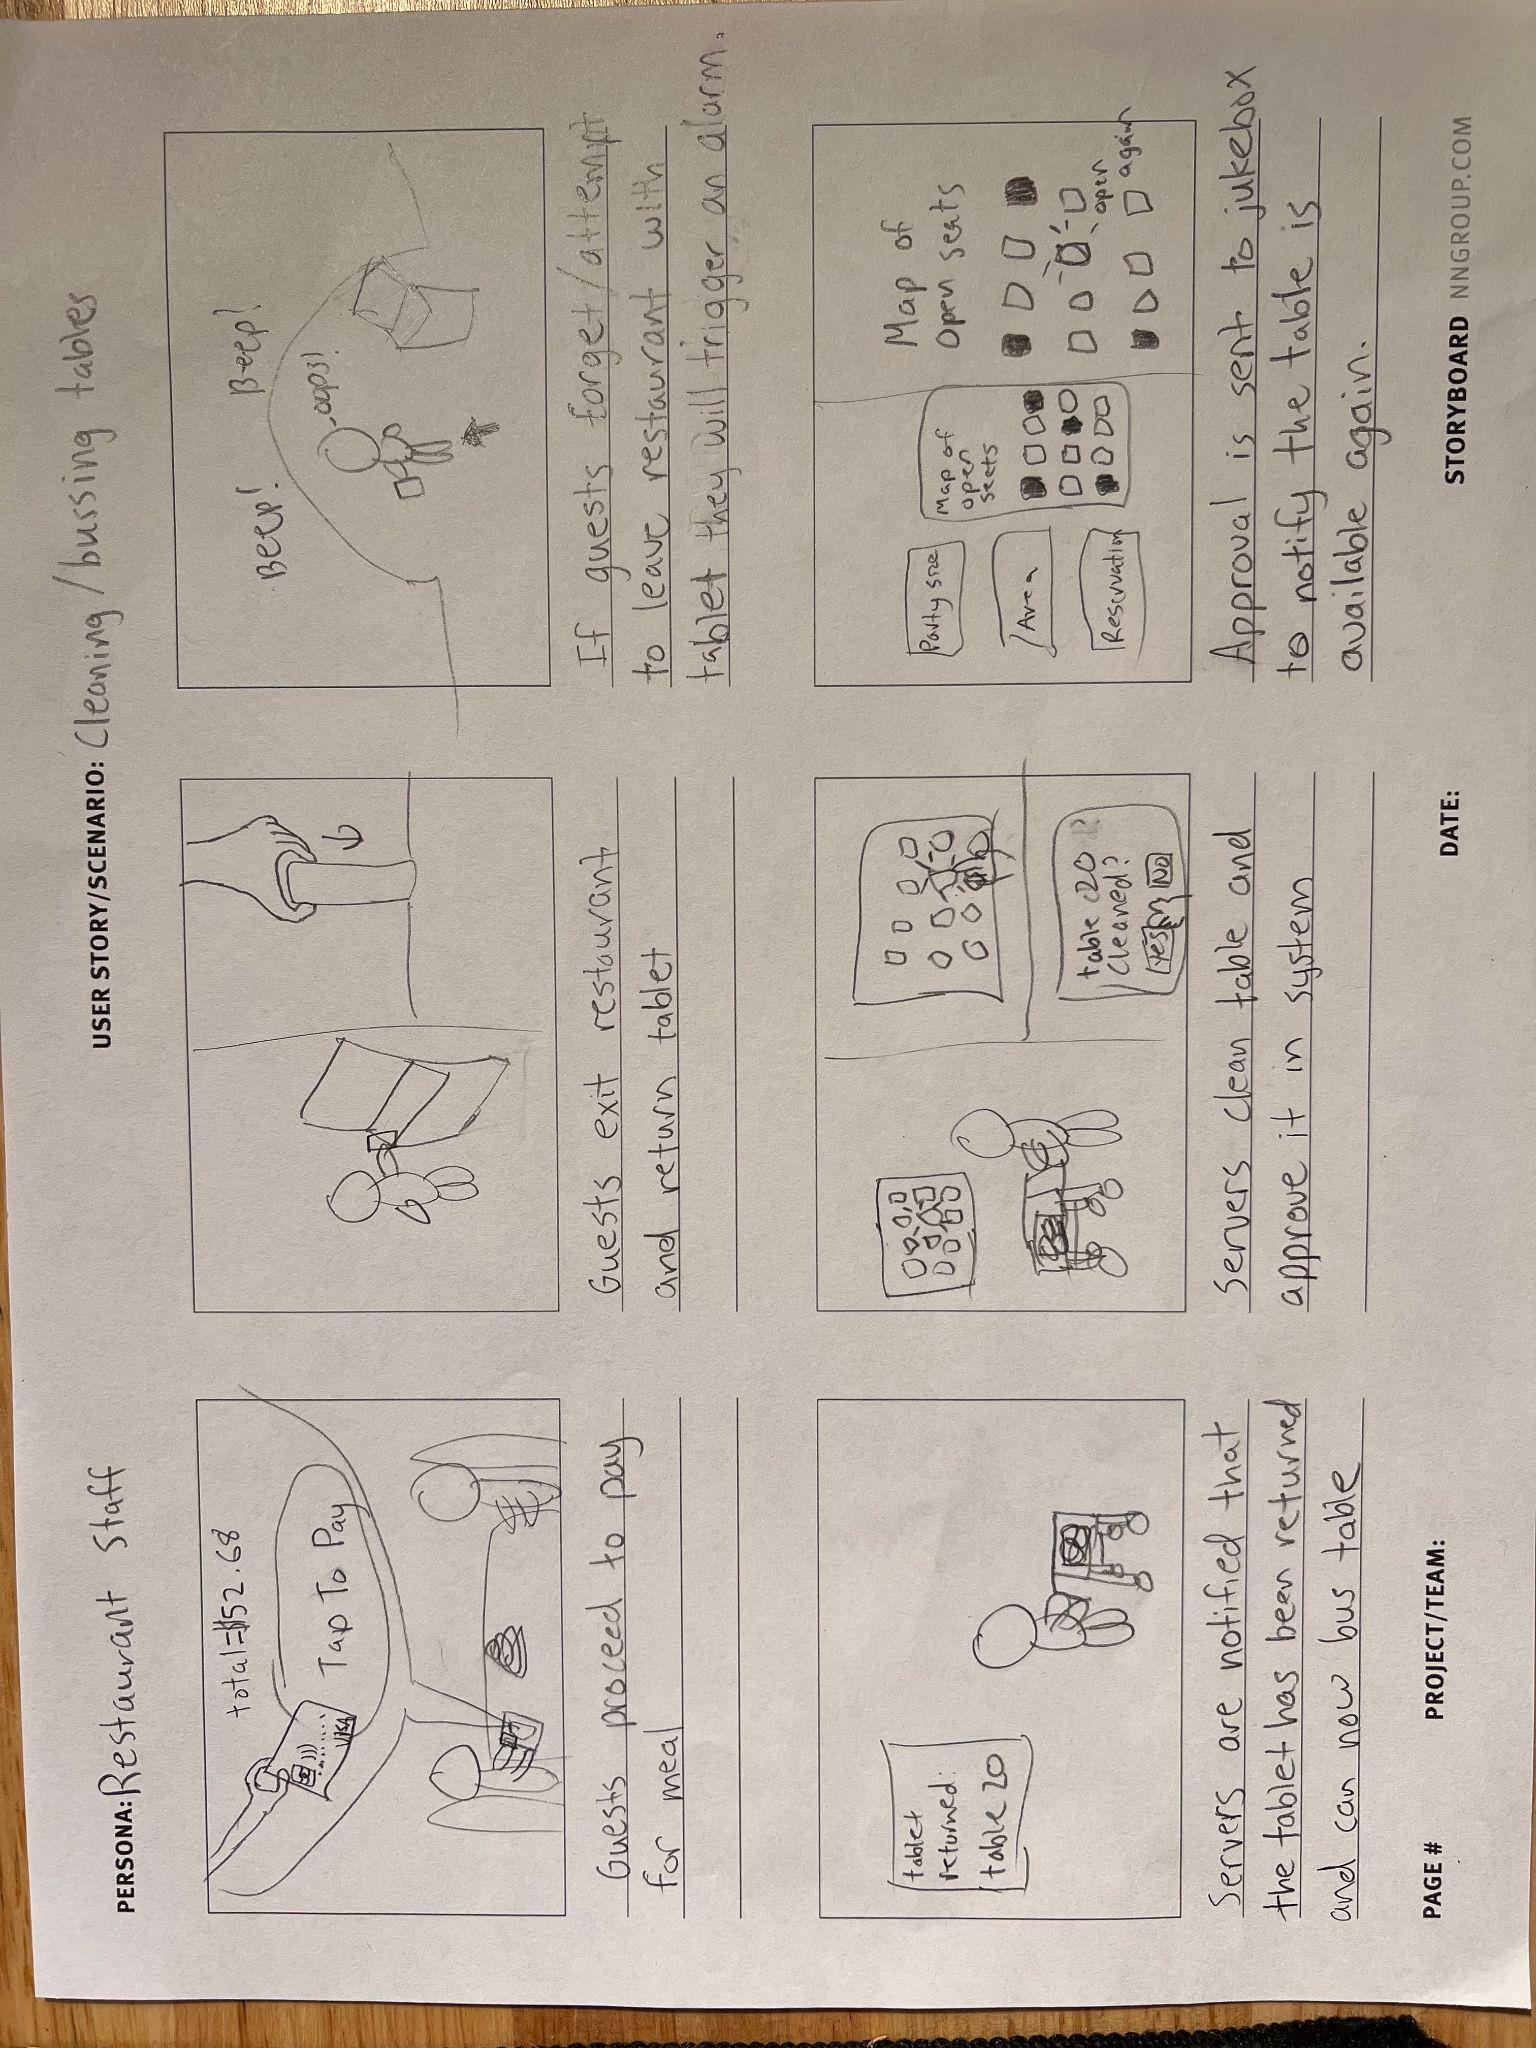 PERSONA: Restaurant Staff
USER STORY/SCENARIO: Cleaning/bussing tables
total=$52.68
Tap To Pay
VISA
Guests proceed to pay
for meal
Guests exit restaurant
and return tablet
Beep! Beep!
oops!
If guests forget/attempt
to leave restaurant with
tablet they will trigger an alarm.
tablet
returned:
table 20
Servers are notified that
the tablet has been returned
and can now bus table
table 20
cleaned?
Yes No
Servers clean table and
approve it in system
Party size
Area
Reservation
Map of
open
seats
Map of
open seats
open
again
Approval is sent to jukebox
to notify the table is
available again.
PAGE #
PROJECT/TEAM:
DATE:
STORYBOARD NNGROUP.COM